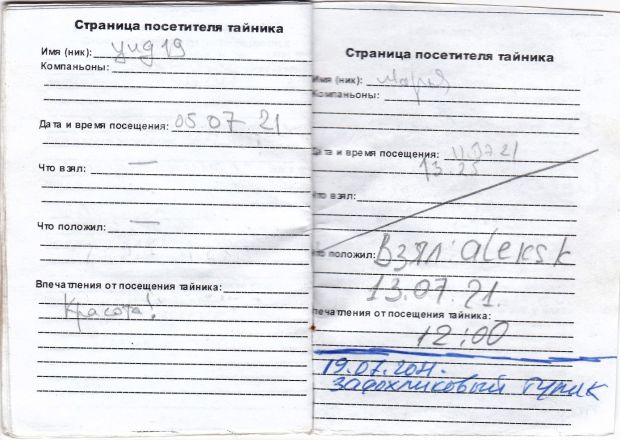 Страница посетителя тайника
Имя (ник): гид 19
Компаньоны:
Дата и время посещения: 05.07.21
Что взял: —
Что положил: —
Впечатления от посещения тайника:
Красота!
Страница посетителя тайника
Имя (ник): Мария
Компаньоны:
Дата и время посещения: 11.07.21
13.25
Что взял:
Что положил: Взял: aleksk
13.07.21.
печатления от посещения тайника:
12:00
19.07.2021.
задохликовый тупик